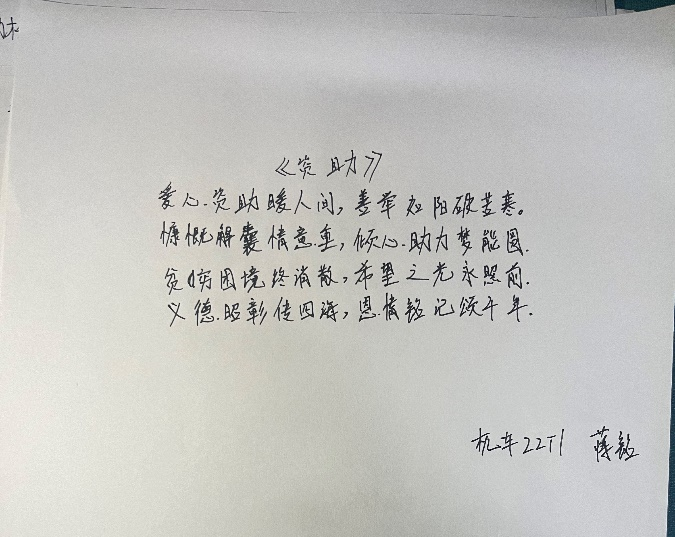 《资助》
爱心资助暖人间，善举如阳破苦寒。
慷慨解囊情意重，倾心助力梦能圆.
贫穷困境终消散，希望之光永照前.
义德昭彰传四海，恩情铭记颂千年.
机车22T1 蒋铭